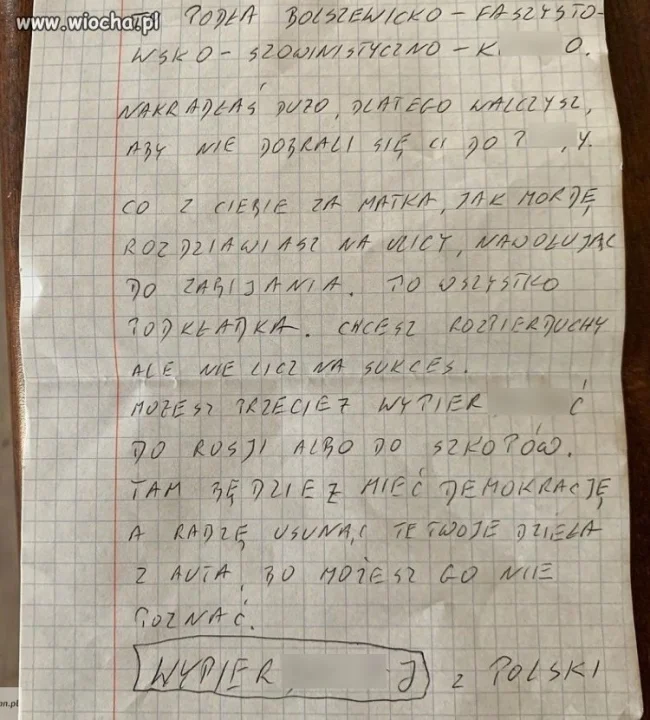 www.wiocha.pl
TY PODŁA BOLSZEWICKO-FASZYSTO-
WSKO-SZOWINISTYCZNO-K. O.
NAKRADŁAŚ DUŻO, DLATEGO WALCZYSZ,
ABY NIE DOBRALI SIĘ CI DO ,Y.
CO Z CIEBIE ZA MATKA, JAK MORDĘ
ROZDZIAWIASZ NA ULICY, NAWOŁUJĄC
DO ZABIJANIA. TO WSZYSTKO
PODKŁADKA. CHCESZ ROZPIERDUCHY
ALE NIE LICZ NA SUKCES.
MOŻESZ PRZECIEŻ WYPIER Ć
DO ROSJI ALBO DO SZKOPÓW.
TAM BĘDZIEZ MIEĆ DEMOKRACJĘ
A RADZĘ USUNĄĆ TE TWOJE DZIEŁA
Z AUTA, BO MOŻESZ GO NIE
POZNAĆ.
WYPIER J z POLSKI